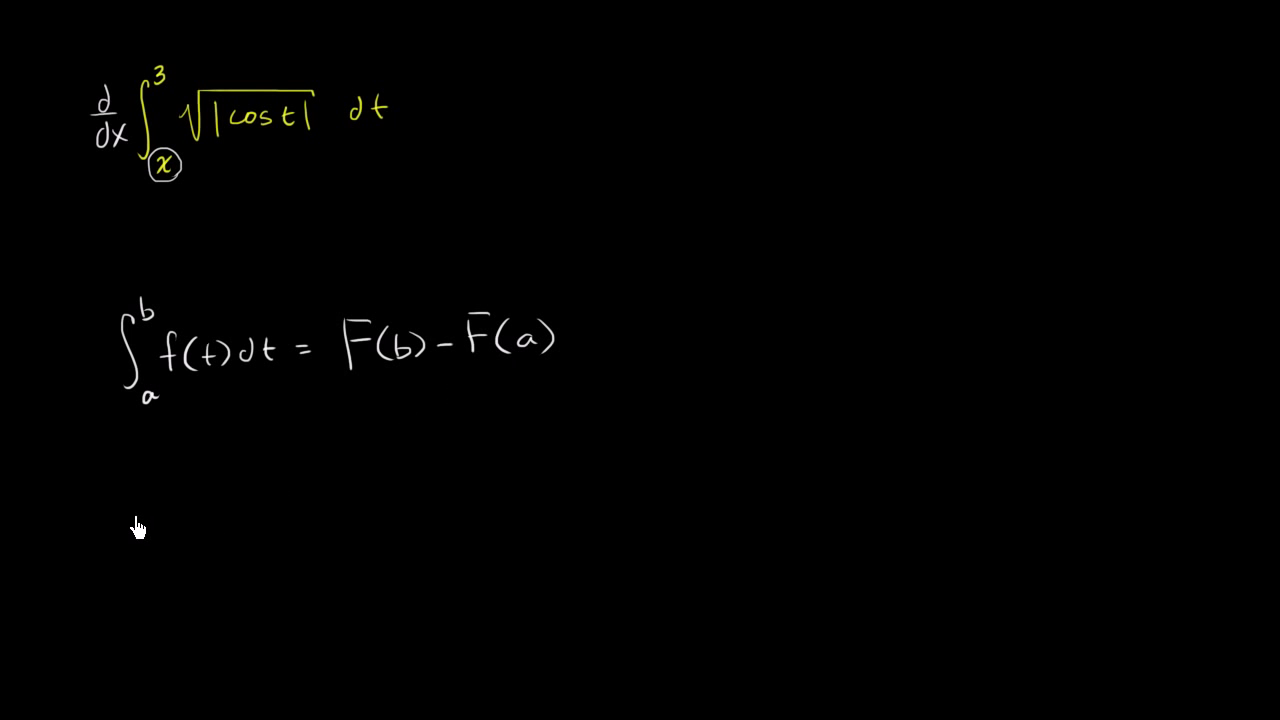 d/dx ∫_x^3 √|cos t| dt
∫_a^b f(t)dt = F(b) - F(a)